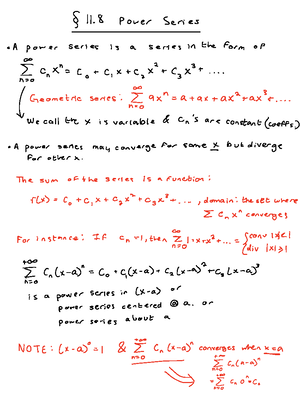 § 11.8 Power Series
• A power series is a series in the form of
∞ Σ n=0 Cₙxⁿ = C₀ + C₁x + C₂x² + C₃x³ + ....
Geometric series: ∞ Σ n=0 axⁿ = a + ax + ax² + ax³ + ...
We call the x is variable & Cₙ's are constant (coeffs)
• A power series may converge for some x but diverge
for other x.
The sum of the series is a function:
f(x) = C₀ + C₁x + C₂x² + C₃x³ + ..., domain: the set where
Σ Cₙxⁿ converges
For instance: If Cₙ = 1, then ∞ Σ n=0 1+x+x²+... = { conv |x|<1
div |x|≥1
+∞ Σ n=0 Cₙ(x-a)ⁿ = C₀ + C₁(x-a) + C₂(x-a)² + C₃(x-a)³
is a power series in (x-a) or
power series centered @ a. or
power series about a
NOTE: (x-a)⁰ = 1 & +∞ Σ n=0 Cₙ(x-a)ⁿ converges when x=a
+∞ Σ n=0 Cₙ(a-a)ⁿ
= +∞ Σ n=0 Cₙ 0ⁿ = C₀